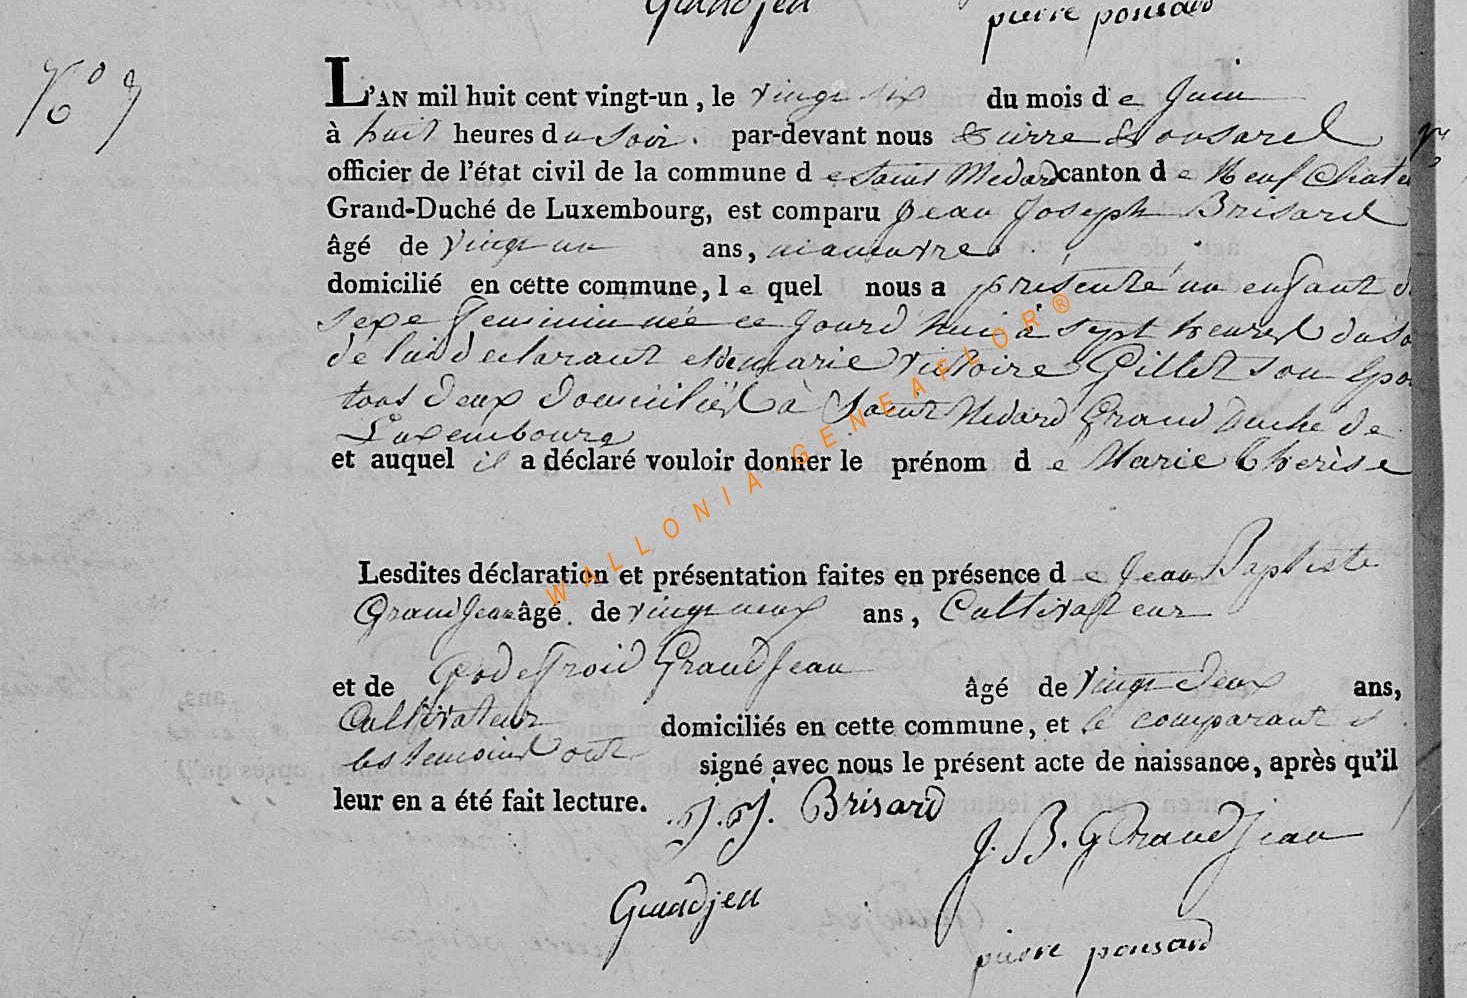 Grandjen pierre ponsard
N° 7
L'AN mil huit cent vingt-un, le vingt six du mois de Juin
à huit heures du soir. par-devant nous Pierre Ponsard
officier de l'état civil de la commune de Saint Médard canton de Neuf Chate
Grand-Duché de Luxembourg, est comparu Jean Joseph Brisard
âgé de vingt un ans, manuvre
domicilié en cette commune, le quel nous a présenté un enfant d
sexe feminin née ce jourd'hui à sept heures du so
de lui declarant et de marie victoire Gillet son Epo
tous deux domiciliés à Saint Medard Grand Duché de
Luxembourg
et auquel il a déclaré vouloir donner le prénom de Marie Therèse
WALLONIA-GENEAFLOR®
Lesdites déclaration et présentation faites en présence de Jean Baptiste
GrandJean âgé de vingt neuf ans, Cultivateur
et de Godefroid GrandJean âgé de vingt deux ans,
Cultivateur domiciliés en cette commune, et le comparant et
les temoins ont signé avec nous le présent acte de naissance, après qu'il
leur en a été fait lecture. J. J. Brisard
J. B. GrandJean
Grandjen
pierre ponsard